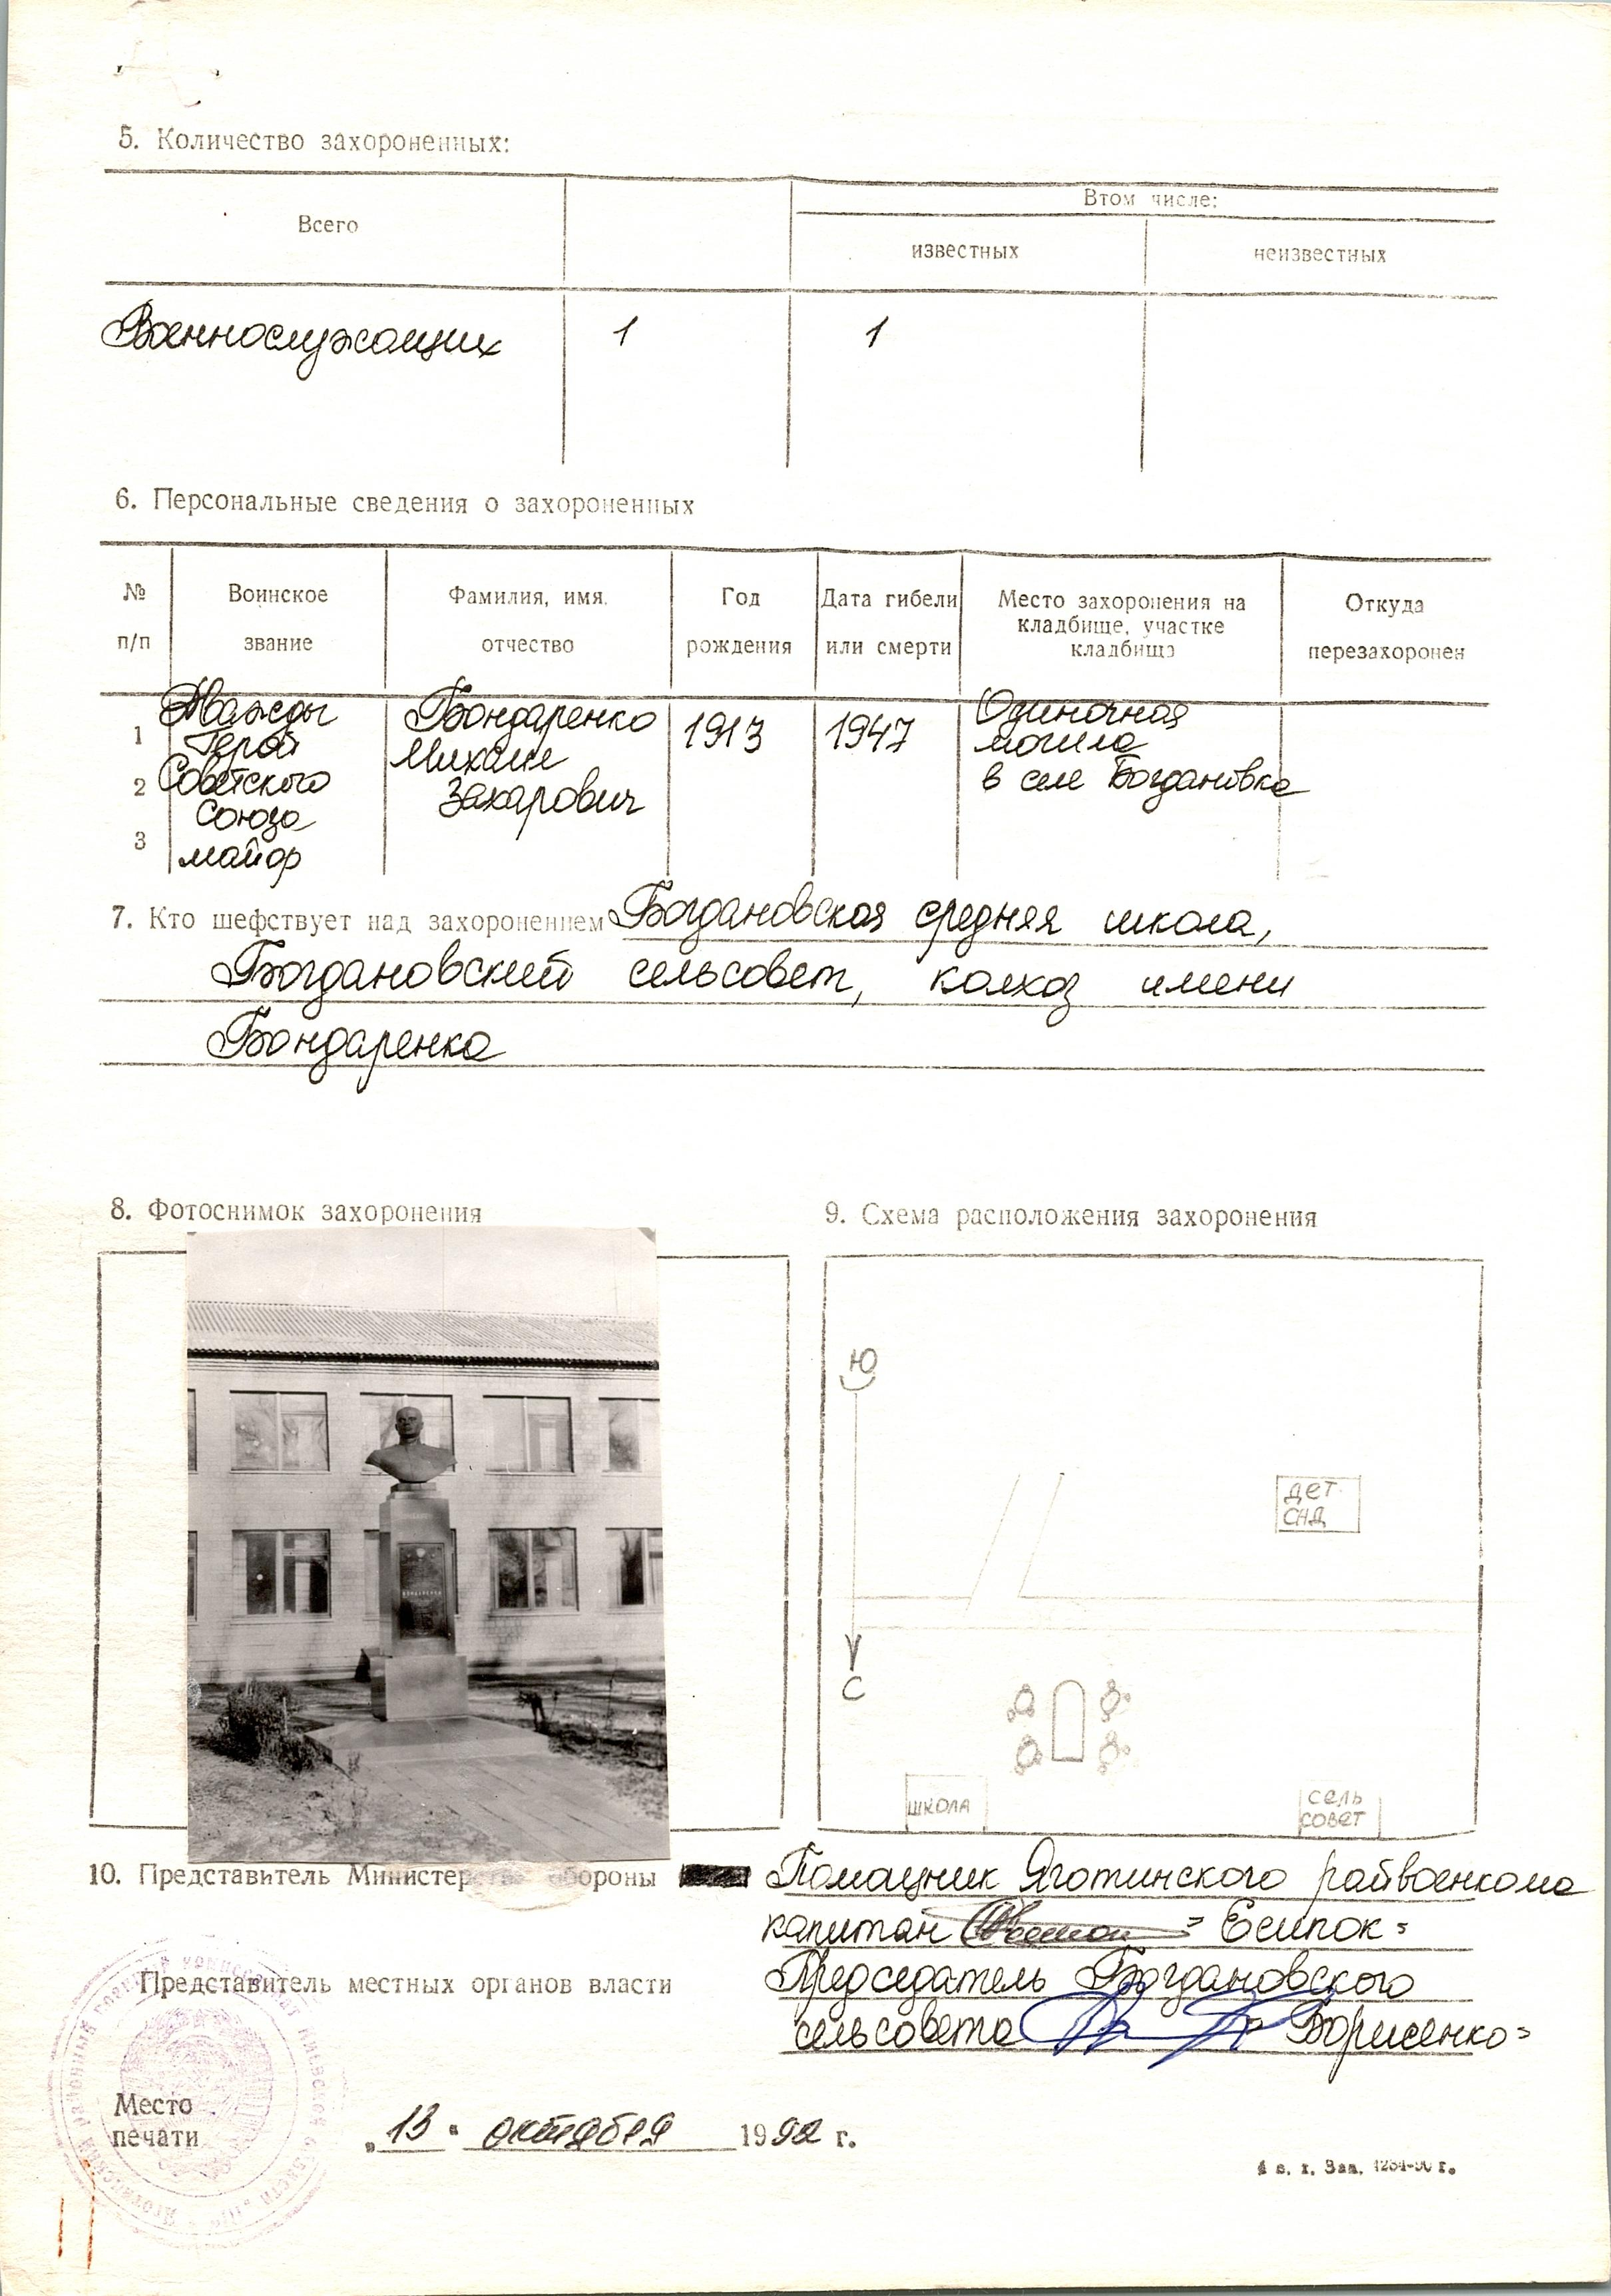 5. Количество захороненных:
Всего
Втом числе:
известных
неизвестных
Военнослужащих 1 1
6. Персональные сведения о захороненных
№ п/п
Воинское звание
Фамилия, имя, отчество
Год рождения
Дата гибели или смерти
Место захоронения на кладбище, участке кладбища
Откуда перезахоронен
1
2
3
Дважды
Герой
Советского
Союза
майор
Бондаренко
Михаил
Захарович
1913
1947
Одиночная
могила
в селе Богдановка
7. Кто шефствует над захоронением Богдановская средняя школа,
Богдановский сельсовет, колхоз имени
Бондаренко
8. Фотоснимок захоронения
9. Схема расположения захоронения
Ю
С
дет.
сад
школа
сель
совет
БОНДАРЕНКО
10. Представитель Министерства обороны Помащник Яготинского райвоенкома
капитан Есипок
Представитель местных органов власти Председатель Богдановского
сельсовета Борисенко
Место
печати
„13“ октября 1992 г.
Зак. 1254-90 г.